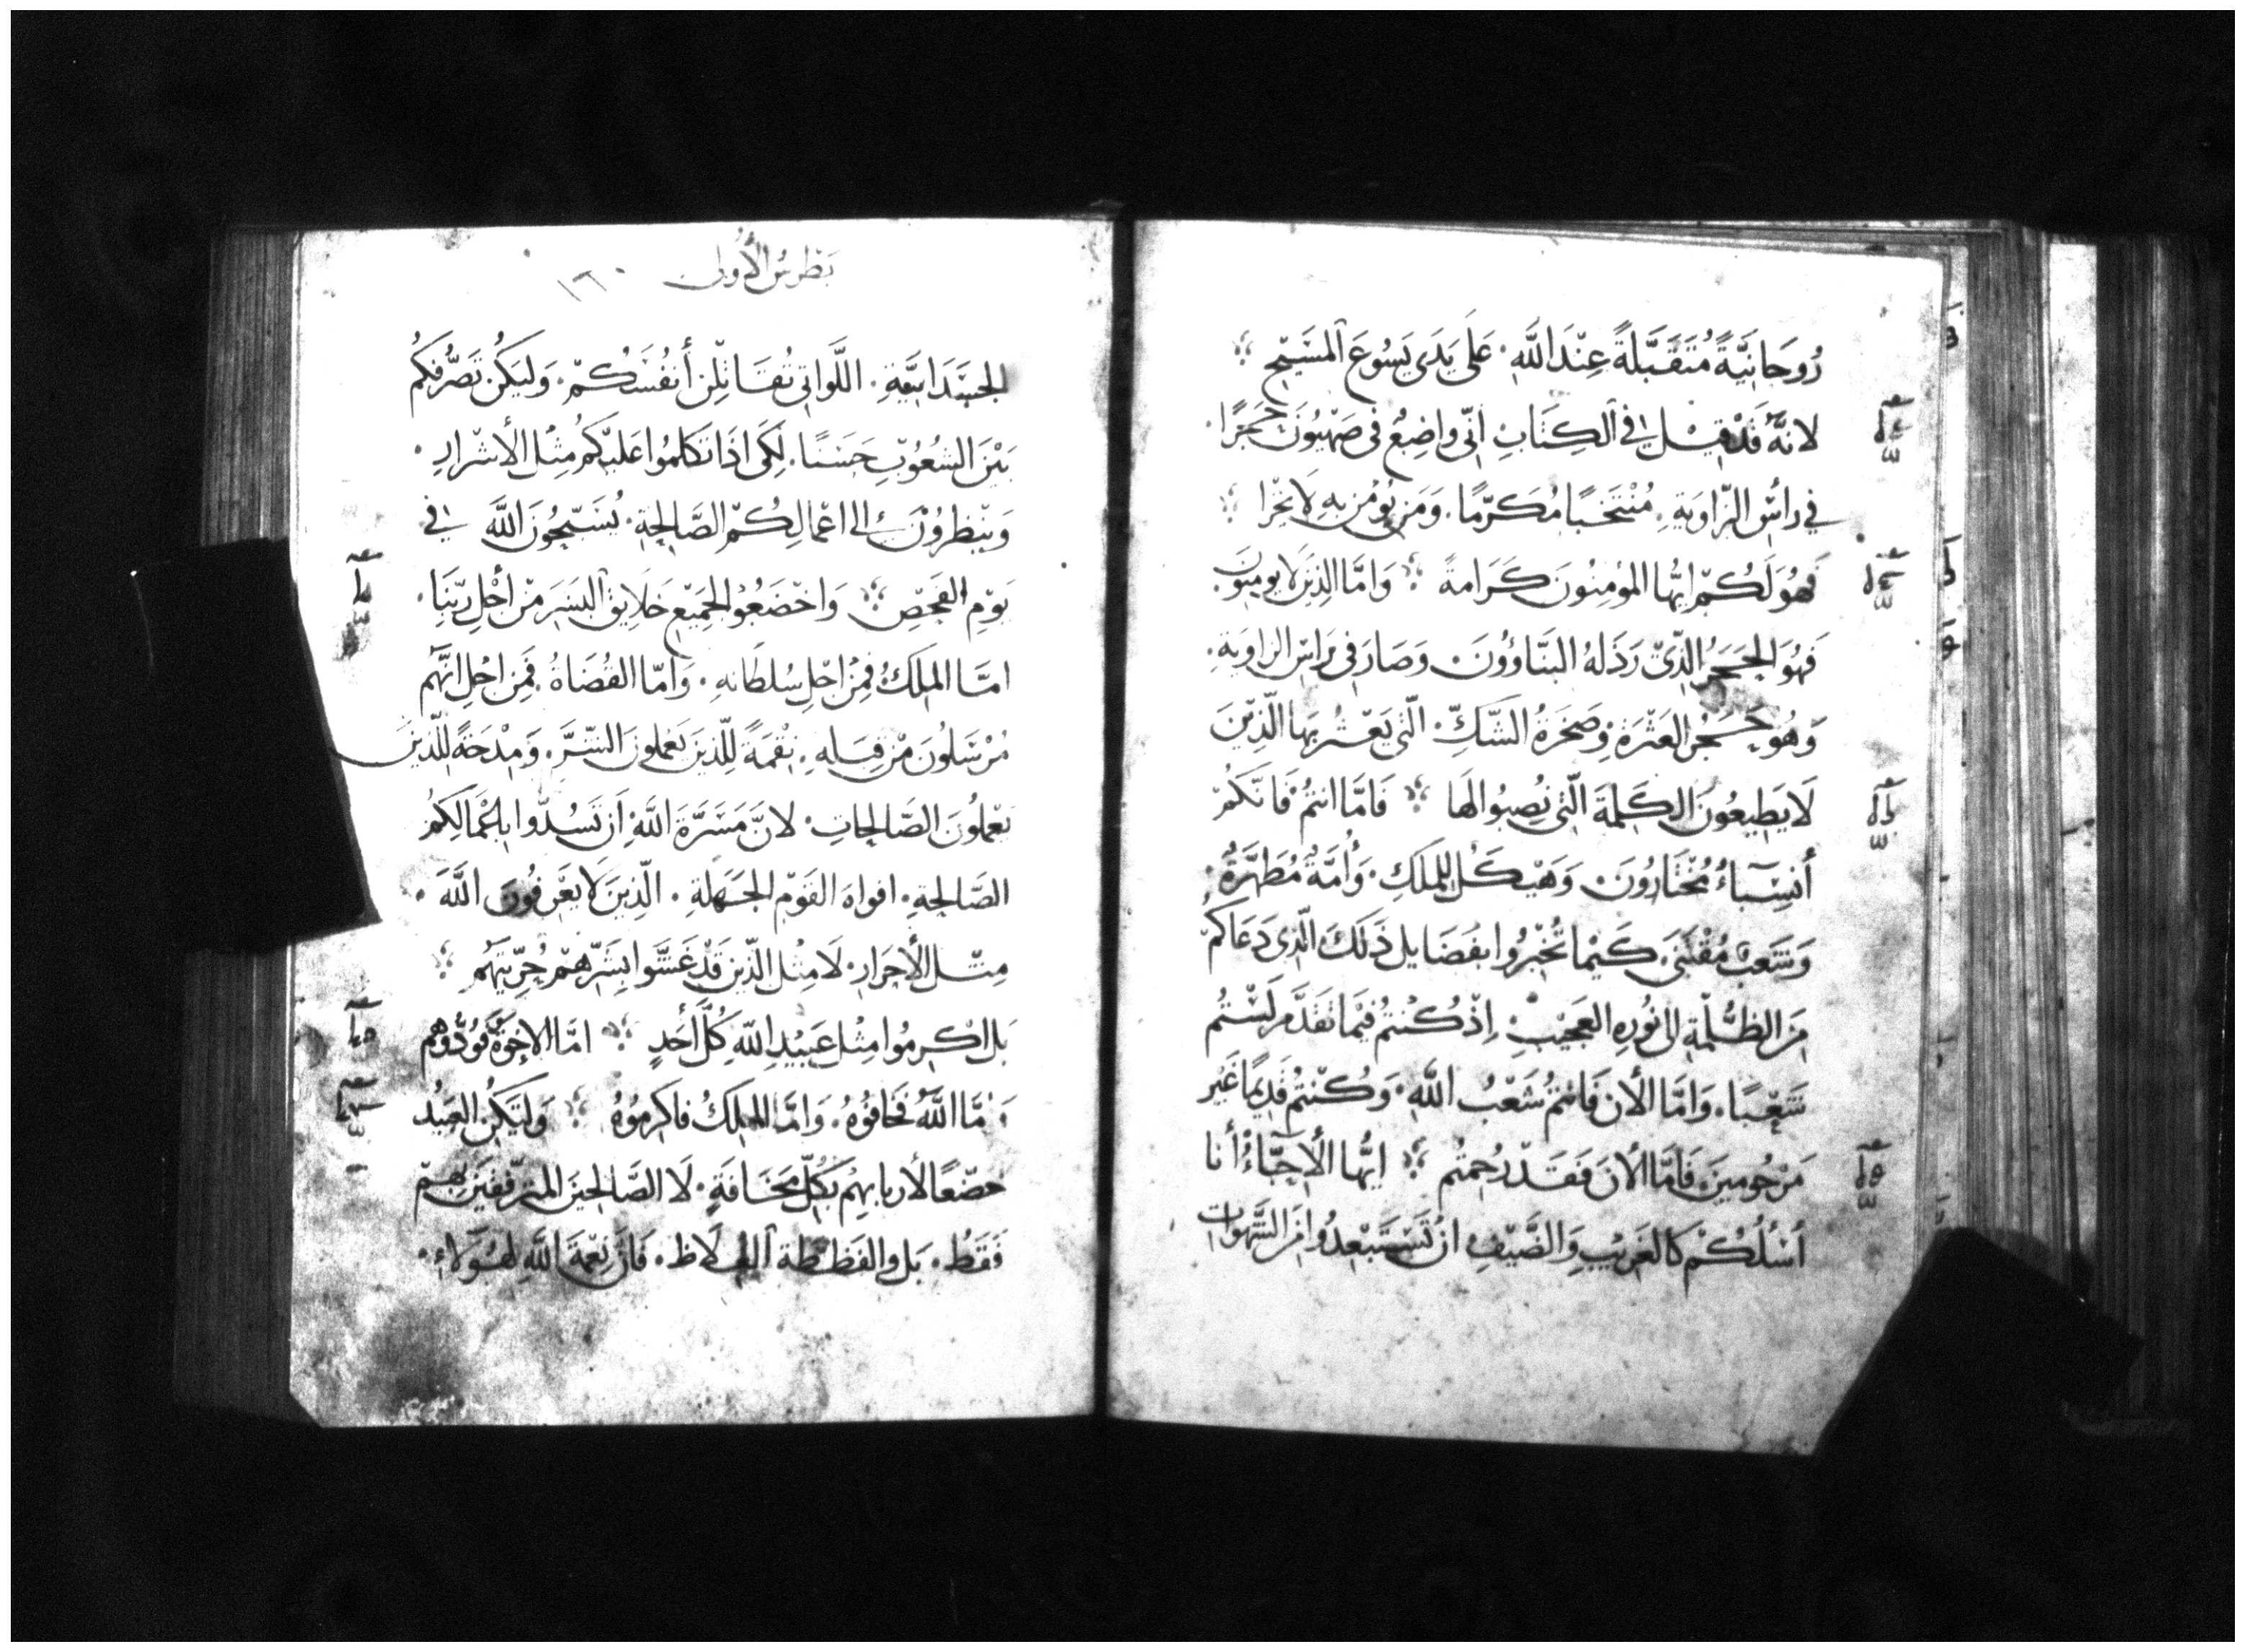 رُوحَانِيَّةً مُتَقَبَّلةً عِنْدَ اللَّهِ. عَلَى يَدَى يَسُوعَ المَسَيْحِ
لانهُ قَدْ قِيْلَ فِي الكِتَابِ انّى واضِعُ فى صَهْيُونَ حَجَرًا.
في راسِ الزّاوِيَةِ. مُنْتَخبًا مُكَرّمًا. وَمَن يُؤْمن بِهِ لاَ يَخْزا
فَهُوَ لَكُمْ ايُّها المؤمِنُونَ كَرَامةً وَامَّا الذِيْنَ لا يومِنُونَ.
فَهُوَ الحَجَرُ الذّىْ رَذَلهُ البَنَّاوُونَ. وَصَارَ فى رَاسِ الزاوِيَةِ.
وَهُوَ حَجَرُ العَثْرَةِ وَصَخرَةُ الشّكِّ. الّتى يَعْثُرُ بهَا الّذِيْنَ
لَا يَطِيعُونَ الكَلِمَةَ الّتى نُصِبُوا لهَا فَامَّا انتُمْ فَانَّكُمْ
أَنسِبَاءُ مُخْتَارُونَ. وَهَيْكَل لِلملَكِ. وَأُمَّةُ مُطَهَّرَةُ.
وَشَعْبُ مُقْتَنَى. كَيْما تُخْبِرُوا بفَضَايل ذَلكَ الّذِى دَعَاكمْ
مِنَ الظُلْمَةِ الى نُورِهِ العَجِيْبِ. اِذْ كُنْتُمُ فيْمَا تَقَدَّمَ لَسْتُمُ
شَعْبًا. وَامَّا الأن فَانتُمْ شَعْبُ اللَّهِ. وَكُنْتُمْ قَدِيمًا غَيْر
مَرْحُومِينَ. فَامَّا الأنَ فَقَدْ رُحِمتُم ايُّها الأَحِبَّاءُ أنا
أسْلُكُمْ كالغَرِيْبِ وَالضَّيْفِ. انْ تَسْتَبْعِدُوا مِنَ الشَّهَوات
بَطْرسُ الأُولى ١٦٠
الجسَدَانِيَّةِ. اللَّوَاتِى تُقَاتِلْن أنفُسَكُمْ. وَليَكُنْ تَصَرُّفكُمُ
بَيْنَ الشعُوُبِ حَسَنًا. لِكَى اذَا تَكَلموُا عَليْكُمُ مِثْل الأشْرارِ.
وَيَنْظرُوْنَ الى اعْمالِكُمْ الصَّالِحِةِ. يُسَبّحِوُنَ اللَّهَ فى
يَوْمِ الفَحْصِ وَاخْضَعُوْا لجَمِيْع خَلَايِق البَشَرِ مِنْ اجْل رَبِّنَا.
امَّا المَلِكُ فمِنْ اجْلِ سُلطَانهِ. وَامّا القُضَاةُ فَمِن اجْلِ انَّهُم
مُرْسَلُونَ مِنْ قِبَلِهِ. نِقْمَةً لِلّذِينَ يَعْملونَ الشّرَّ. وَمِدْحَةً لِلّذِيْنَ
يَعْملُونَ الصّالِحَاتِ. لانَّ مَسَرَّةَ اللَّهِ ان تَسُدّوا باعْمَالِكمُ
الصَّالِحِةِ. افواهَ القَوْمِ الجَهَلةِ. الّذِينَ لَا يَعْرفُونَ اللَّهَ.
مِثل الأحرَارِ. لَا مِثْل الّذِين قَدْ غَشَّوا بِشَرِّهمْ حُرِّيتَهُم
بَل اكْرِموُا مِثْل عَبيْدِ اللهِ كُلَّ أحَدٍ امَّا الاخِوَةُ فَوُدُّوهُم
وَامَّا اللَّهُ فَخَافوُهُ. وَامَّا المَلِكُ فاكرِموُهُ وَلتَكُنِ العَبيْدُ
خضّعًا لأربابِهُمِ بكلِّ مَخَافَةٍ. لَا الصَّالحِينَ المُترفّقينَ بِهِمْ
فَقَطُ. بَل وَالفظظة الغلَاظ. فَانَّ نِعْمَةَ اللَّهِ لهَؤُلَاءِ.